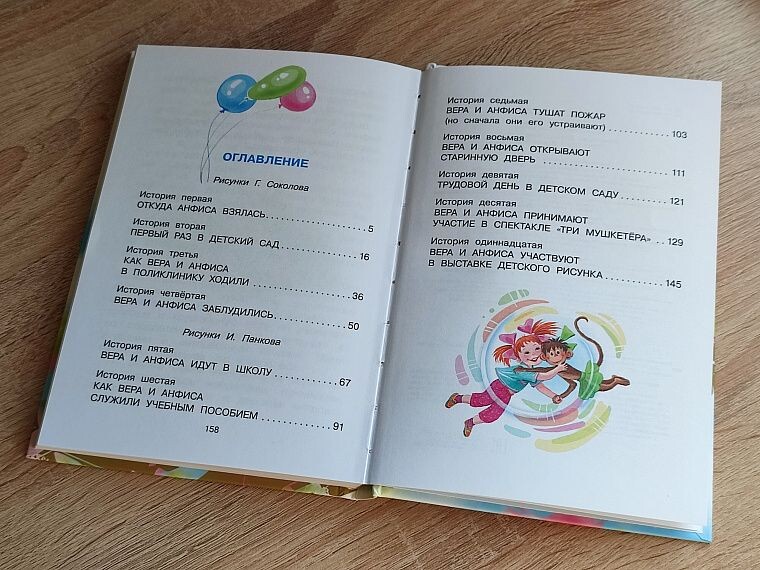 ОГЛАВЛЕНИЕ
Рисунки Г. Соколова
История первая
ОТКУДА АНФИСА ВЗЯЛАСЬ.................5
История вторая
ПЕРВЫЙ РАЗ В ДЕТСКИЙ САД.............16
История третья
КАК ВЕРА И АНФИСА
В ПОЛИКЛИНИКУ ХОДИЛИ.................36
История четвёртая
ВЕРА И АНФИСА ЗАБЛУДИЛИСЬ............50
Рисунки И. Панкова
История пятая
ВЕРА И АНФИСА ИДУТ В ШКОЛУ...........67
История шестая
КАК ВЕРА И АНФИСА
СЛУЖИЛИ УЧЕБНЫМ ПОСОБИЕМ.............91
158
История седьмая
ВЕРА И АНФИСА ТУШАТ ПОЖАР
(но сначала они его устраивают)...........103
История восьмая
ВЕРА И АНФИСА ОТКРЫВАЮТ
СТАРИННУЮ ДВЕРЬ ...................111
История девятая
ТРУДОВОЙ ДЕНЬ В ДЕТСКОМ САДУ.........121
История десятая
ВЕРА И АНФИСА ПРИНИМАЮТ
УЧАСТИЕ В СПЕКТАКЛЕ «ТРИ МУШКЕТЁРА» ..129
История одиннадцатая
ВЕРА И АНФИСА УЧАСТВУЮТ
В ВЫСТАВКЕ ДЕТСКОГО РИСУНКА..........145